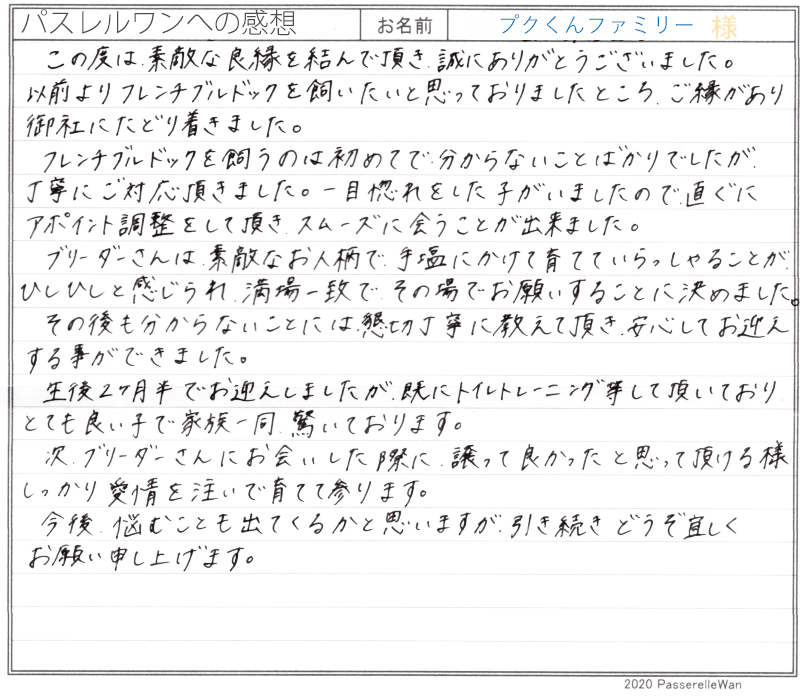 パスレルワンへの感想 お名前 プクくんファミリー 様
この度は、素敵な良縁を結んで頂き、誠にありがとうございました。
以前よりフレンチブルドックを飼いたいと思っておりましたところ、ご縁があり
御社にたどり着きました。
フレンチブルドックを飼うのは初めてで、分からないことばかりでしたが、
丁寧にご対応頂きました。一目惚れをした子がいましたので、直ぐに
アポイント調整をして頂き、スムーズに会うことが出来ました。
ブリーダーさんは、素敵なお人柄で、手塩にかけて育てていらっしゃることが、
ひしひしと感じられ、満場一致で、その場でお願いすることに決めました。
その後も分からないことには、懇切丁寧に教えて頂き、安心してお迎え
する事ができました。
生後2ヶ月半でお迎えしましたが、既にトイレトレーニング等して頂いており、
とても良い子で家族一同、驚いております。
次、ブリーダーさんにお会いした際に、譲って良かったと思って頂ける様
しっかり愛情を注いで育てて参ります。
今後、悩むことも出てくるかと思いますが、引き続きどうぞ宜しく
お願い申し上げます。
2020 PasserelleWan